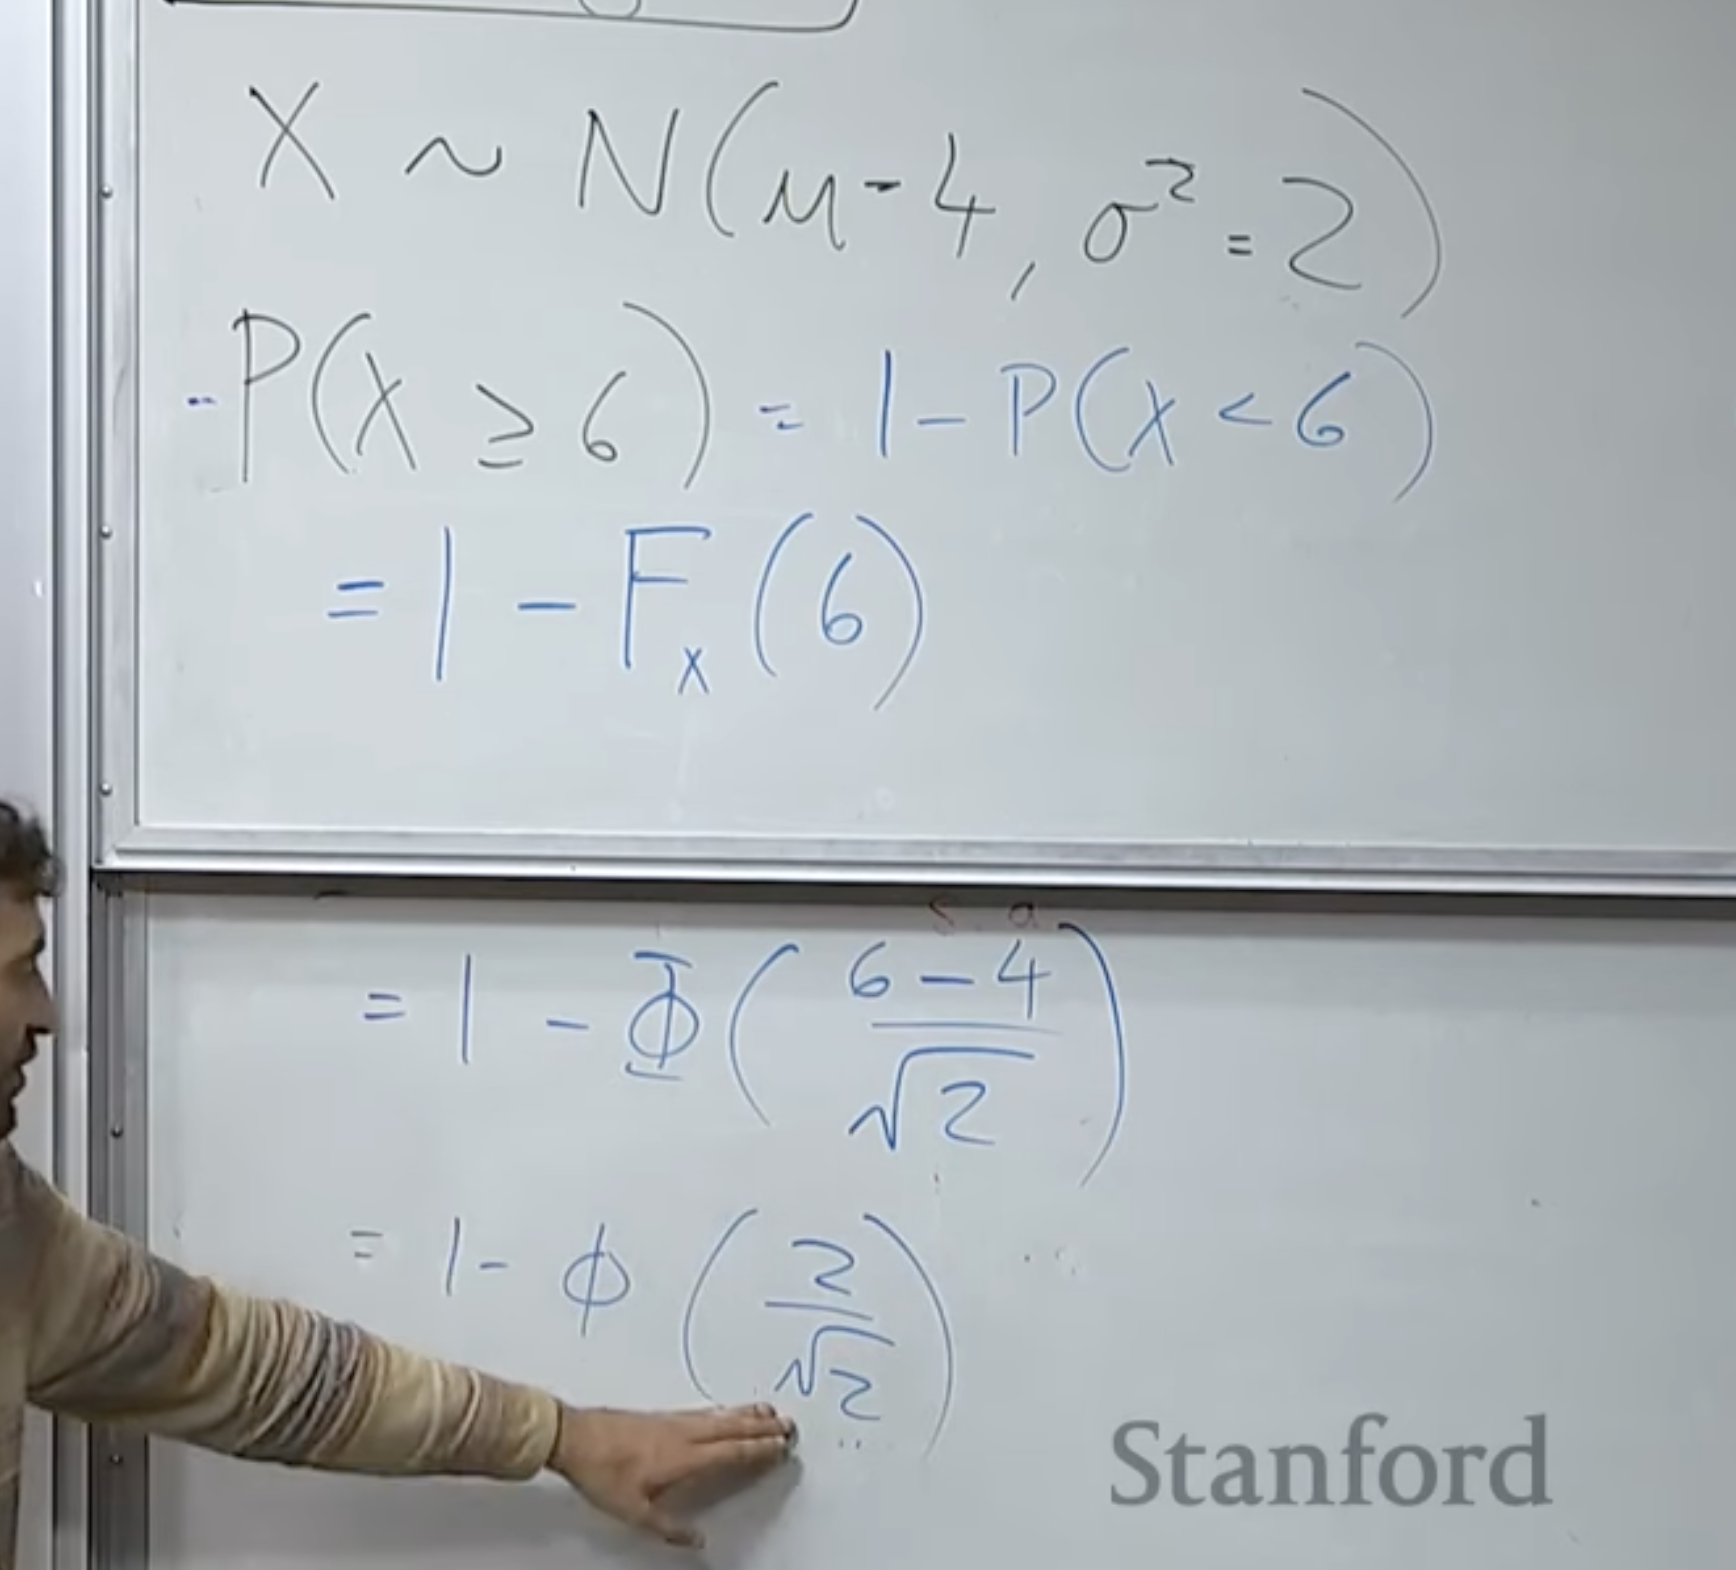 X ~ N(μ-4, σ² = 2)
P(X ≥ 6) = 1 - P(X < 6)
= 1 - Fₓ(6)
= 1 - Φ((6-4)/√2)
= 1 - ϕ(2/√2)
Stanford